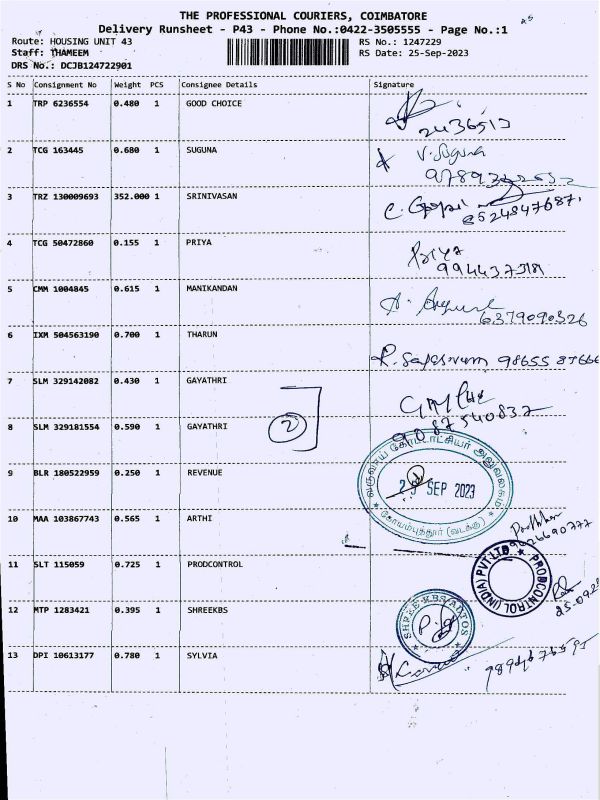 THE PROFESSIONAL COURIERS, COIMBATORE
Delivery Runsheet - P43 - Phone No.:0422-3505555 - Page No.:1
Route: HOUSING UNIT 43 RS No.: 1247229
Staff: THAMEEM RS Date: 25-Sep-2023
DRS No.: DCJB124722901
S No Consignment No Weight PCS Consignee Details Signature
1 TRP 6236554 0.480 1 GOOD CHOICE
2 TCG 163445 0.680 1 SUGUNA V. Suguna
3 TRZ 130009693 352.000 1 SRINIVASAN
8524847687.
4 TCG 50472860 0.155 1 PRIYA Priya
5 CMM 1004845 0.615 1 MANIKANDAN
6379090326
6 IXM 504563190 0.700 1 THARUN
7 SLM 329142082 0.430 1 GAYATHRI
9087540837
8 SLM 329181554 0.590 1 GAYATHRI 2
வருவாய் கோட்டாட்சியர் அலுவலகம்
9 BLR 180522959 0.250 1 REVENUE SEP 2023
கோயம்புத்தூர் (வடக்கு)
10 MAA 103867743 0.565 1 ARTHI
11 SLT 115059 0.725 1 PRODCONTROL PROBCONTROL (INDIA) PVT LTD
12 MTP 1283421 0.395 1 SHREEKBS SHREE KBS AUTOS
13 DPI 10613177 0.780 1 SYLVIA